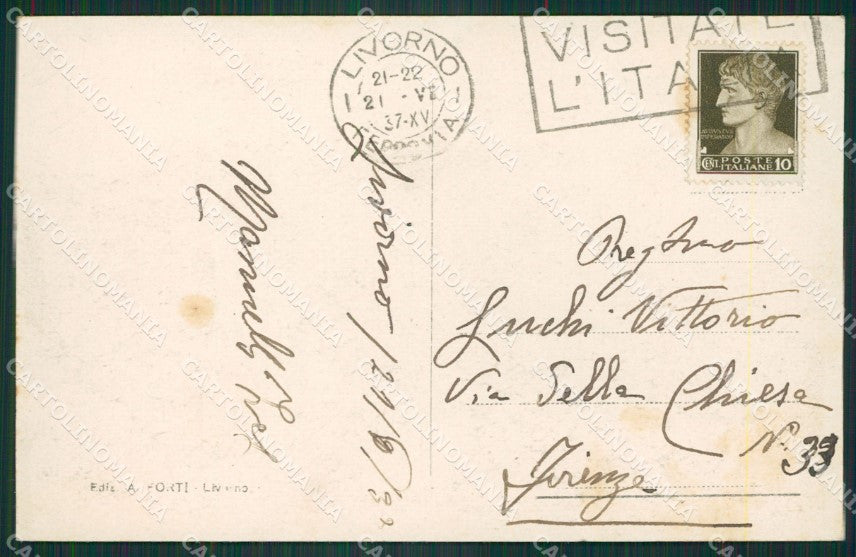 LIVORNO
21-22
21 - VI
37-XV
FERROVIA
VISITATE
L'ITA
POSTE
ITALIANE
CENT. 10
Livorno, 21/6/37
Preg/mo
Luchi Vittorio
Via Della Chiesa
N. 33
Firenze
Ediz. A. FORTI - Livorno
CARTOLINOMANIA